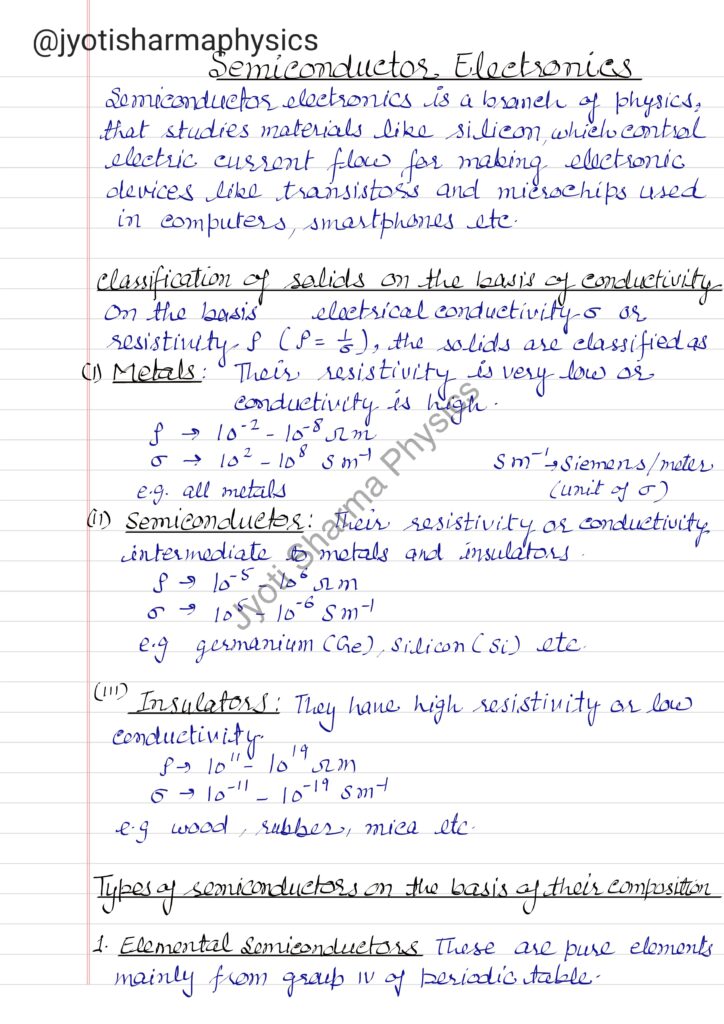 @jyotisharmaphysics
Semiconductor Electronics
Semiconductor electronics is a branch of physics,
that studies materials like silicon, which control
electric current flow for making electronic
devices like transistors and microchips used
in computers, smartphones etc.
Classification of solids on the basis of conductivity
On the basis electrical conductivity σ or
resistivity ρ (ρ = 1/σ), the solids are classified as
(i) Metals: Their resistivity is very low or
conductivity is high.
ρ → 10⁻² - 10⁻⁸ Ωm
σ → 10² - 10⁸ Sm⁻¹ Sm⁻¹ → Siemens/meter
e.g. all metals (unit of σ)
(ii) Semiconductor: Their resistivity or conductivity
intermediate to metals and insulators.
ρ → 10⁻⁵ - 10⁶ Ωm
σ → 10⁵ - 10⁻⁶ Sm⁻¹
e.g germanium (Ge), silicon (Si) etc.
(iii) Insulators: They have high resistivity or low
conductivity.
ρ → 10¹¹ - 10¹⁹ Ωm
σ → 10⁻¹¹ - 10⁻¹⁹ Sm⁻¹
e.g wood, rubber, mica etc.
Types of semiconductors on the basis of their composition
1. Elemental Semiconductors These are pure elements
mainly from group IV of periodic table.
Jyoti Sharma Physics